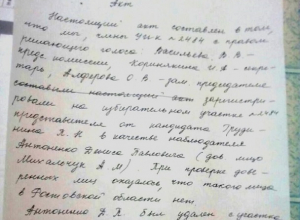 Акт
Настоящий акт составлен в том,
что мы, члены УИК № 2484 с правом
решающего голоса: Васильева В. В. -
комиссии, Корнилкина И. А - секре-
тарь, Алферова О В - зам председателя
составили настоящий акт зарегистри-
ровали на избирательном участке
представителя от кандидата Груди-
нина П. Н в качестве наблюдателя
Антоненко Дениса Павловича (дов лицо
Михальчук А. М) При проверке дове-
ренных лиц оказалось, что такого лица
в Ростовской области нет
Антоненко Д. П. был удален с участка